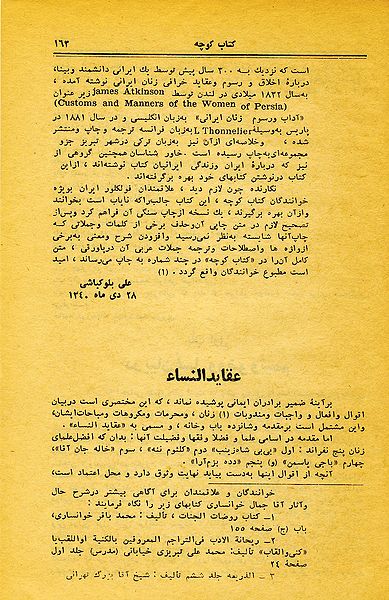 کتاب کوچه ۱۶۳
است که نزدیك به ۳۰۰ سال پیش توسط یك ایرانی دانشمند وبینا،
دربارهٔ اخلاق و رسوم وعقاید خرافی زنان ایرانی نوشته آمده ،
بهسال ۱۸۳۲ میلادی در لندن توسط James Atkinson زیر عنوان
(Customs and Manners of the Women of Persia)
«آداب ورسوم زنان ایرانی» بهزبان انگلیسی و در سال ۱۸۸۱ در
پاریس بهوسیلهٔ L Thonnelier بهزبان فرانسه ترجمه و چاپ ومنتشر
شده ، وخلاصهای ازآن نیز بهزبان ترکی درشهر تبریز جزو
مجموعهای بهچاپ رسیده است . خاور شناسان همچنین گروهی از
نیز که دربارهٔ ایران وزندگی ایرانیان کتاب نوشتهاند ، ازاین
کتاب درنوشتن کتابهای خود بهره برگرفتهاند .
نگارنده چون لازم دید ، علاقمندان فولکلور ایران بویژه
خوانندگان کتاب کوچه ، این کتاب جالب راکه نایاب است بخوانند
وازآن بهره برگیرند ، یك نسخه ازچاپ سنگی آن فراهم کرد وپس از
تصحیح لازم در متن چاپی آن وحذف برخی از کلمات وجملاتی که
چاپ آنها شایسته بهنظر نمیرسید وافزودن شرح ومعنی بهبرخی
ازواژه ها واصطلاحات وترجمه جملات عربی آن درپاورقی ، متن
کامل آن را در «کتاب کوچه» در چند شماره به چاپ میرساند ، امید
است مطبوع خوانندگان واقع گردد . (۱)
علی بلوکباشی
۲۸ دی ماه ۱۳۴۰
عقایدالنساء
برآینهٔ ضمیر برادران ایمانی پوشیده نماند ، که این مختصری است دربیان
اقوال وافعال و واجبات ومندوبات (۱) زنان ، ومحرمات ومکروهات ومباحات ایشان ،
واین مشتمل است برمقدمه وشانزده باب وخاتمه ، و مسمی به «عقاید النساء» .
اما مقدمه در اسامی علما و فضلا وفقها وفضیلت آنها : بدان که افضل علمای
زنان پنج نفراند : اول «بیبی شاه زینب» دوم «کلثوم ننه» ، سوم «خاله جان آقا» ،
چهارم «باجی یاسمن» (و) پنجم «دده بزمآرا» .
آنچه از اقوال اینها بهدست بیاید نهایت وثوق دارد و محل اعتماد است ،
خوانندگان و علاقمندان برای آگاهی بیشتر درشرح حال
وآثار آقا جمال خوانساری کتابهای زیر را نگاه فرمایند :
۱ـ کتاب روضات الجنات ، تألیف : محمد باقر خوانساری ،
باب (ج) صفحه ۱۵۵
۲ـ ریحانة الادب فیالتراجم المعروفین بالکنیة اواللقب یا
«کنی والقاب» تألیف : محمد علی تبریزی خیابانی (مدرس) جلد اول
صفحهٔ ۲۴
۳ـ الذریعه جلد ششم تألیف : شیخ آقا بزرك تهرانی